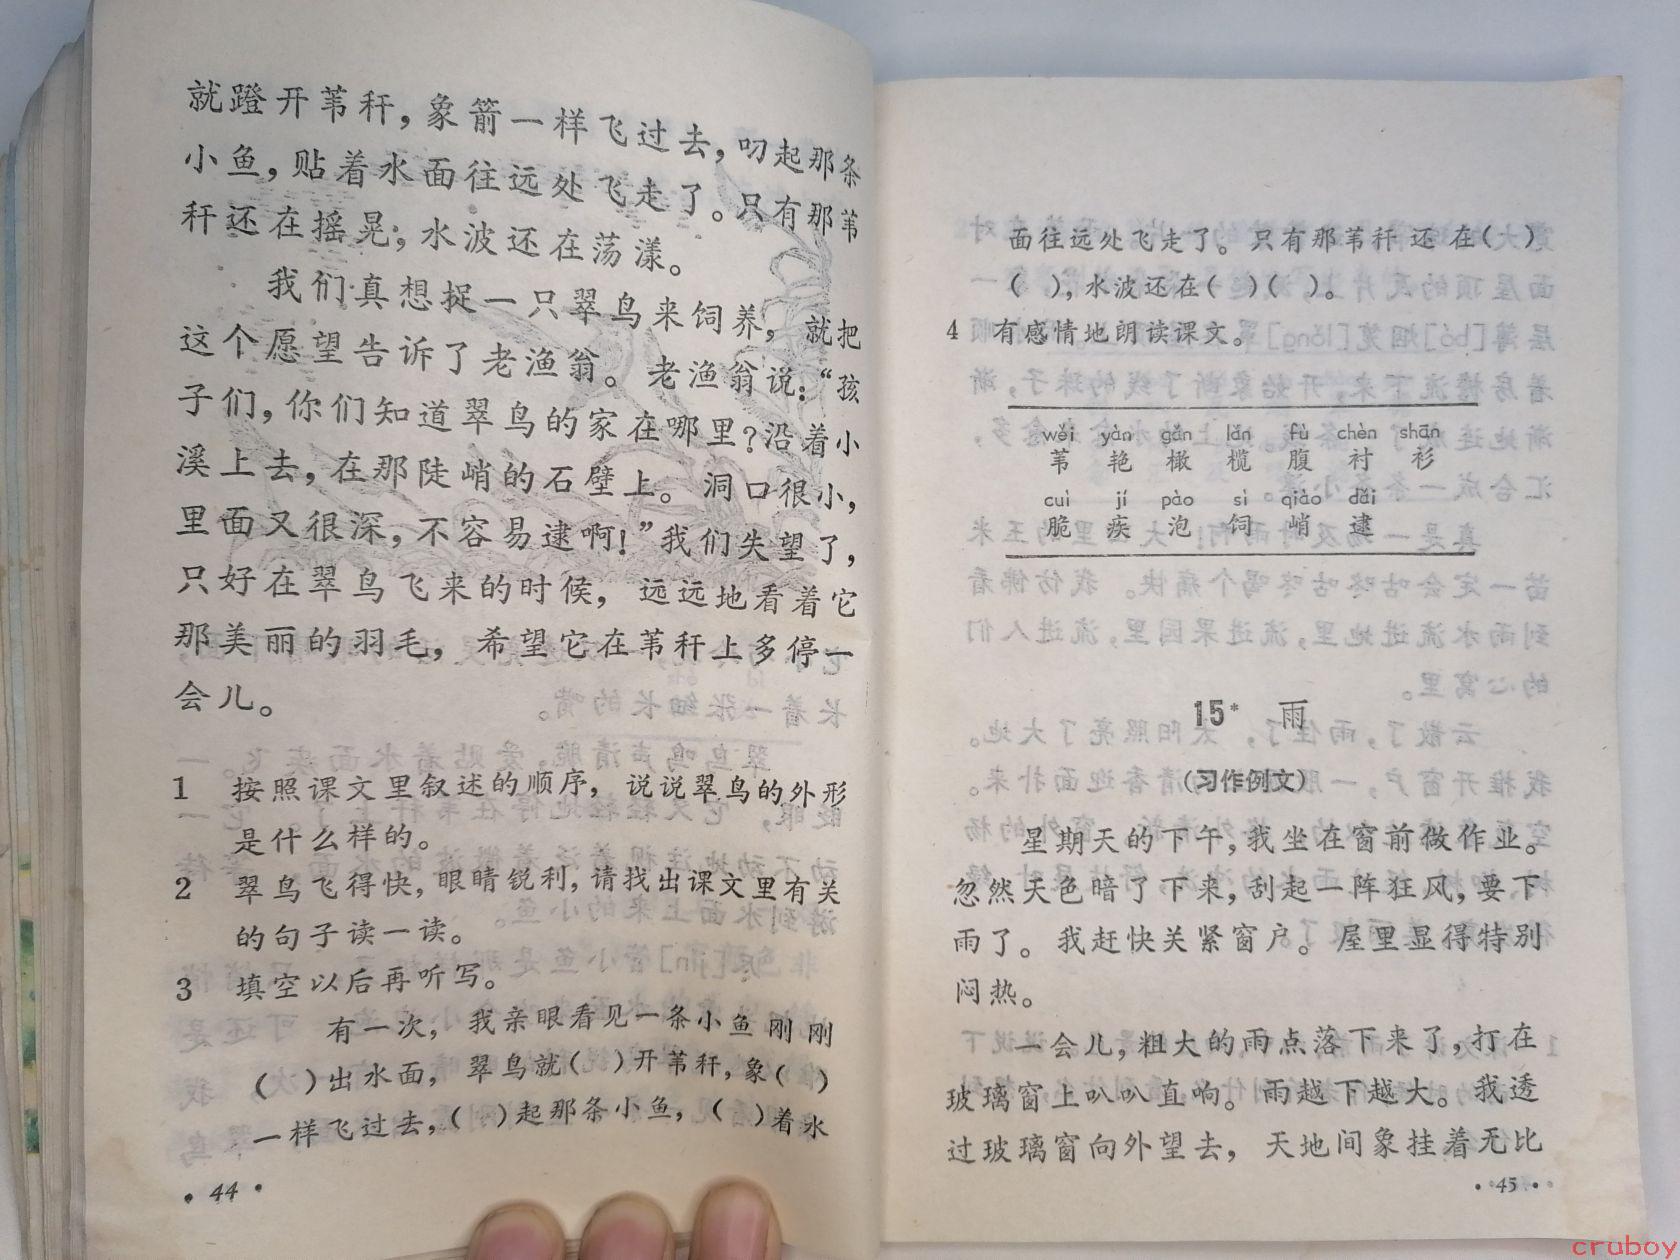 就蹬开苇秆，象箭一样飞过去，叨起那条
小鱼，贴着水面往远处飞走了。只有那苇
秆还在摇晃；水波还在荡漾。
我们真想捉一只翠鸟来饲养，就把
这个愿望告诉了老渔翁。老渔翁说：“孩
子们，你们知道翠鸟的家在哪里？沿着小
溪上去，在那陡峭的石壁上。洞口很小，
里面又很深，不容易逮啊！”我们失望了，
只好在翠鸟飞来的时候，远远地看着它
那美丽的羽毛，希望它在苇秆上多停一
会儿。
1 按照课文里叙述的顺序，说说翠鸟的外形
是什么样的。
2 翠鸟飞得快，眼睛锐利，请找出课文里有关
的句子读一读。
3 填空以后再听写。
有一次，我亲眼看见一条小鱼刚刚
（ ）出水面，翠鸟就（ ）开苇秆，象（ ）
一样飞过去，（ ）起那条小鱼，（ ）着水
• 44 •
面往远处飞走了。只有那苇秆还在（ ）
（ ），水波还在（ ）（ ）。
4 有感情地朗读课文。
wěi yàn gǎn lǎn fù chèn shān
苇 艳 橄 榄 腹 衬 衫
cuì jí pào sì qiào dǎi
脆 疾 泡 饲 峭 逮
15* 雨
（习作例文）
星期天的下午，我坐在窗前做作业。
忽然天色暗了下来，刮起一阵狂风，要下
雨了。我赶快关紧窗户。屋里显得特别
闷热。
一会儿，粗大的雨点落下来了，打在
玻璃窗上叭叭直响。雨越下越大。我透
过玻璃窗向外望去，天地间象挂着无比
• 45 •
cruboy